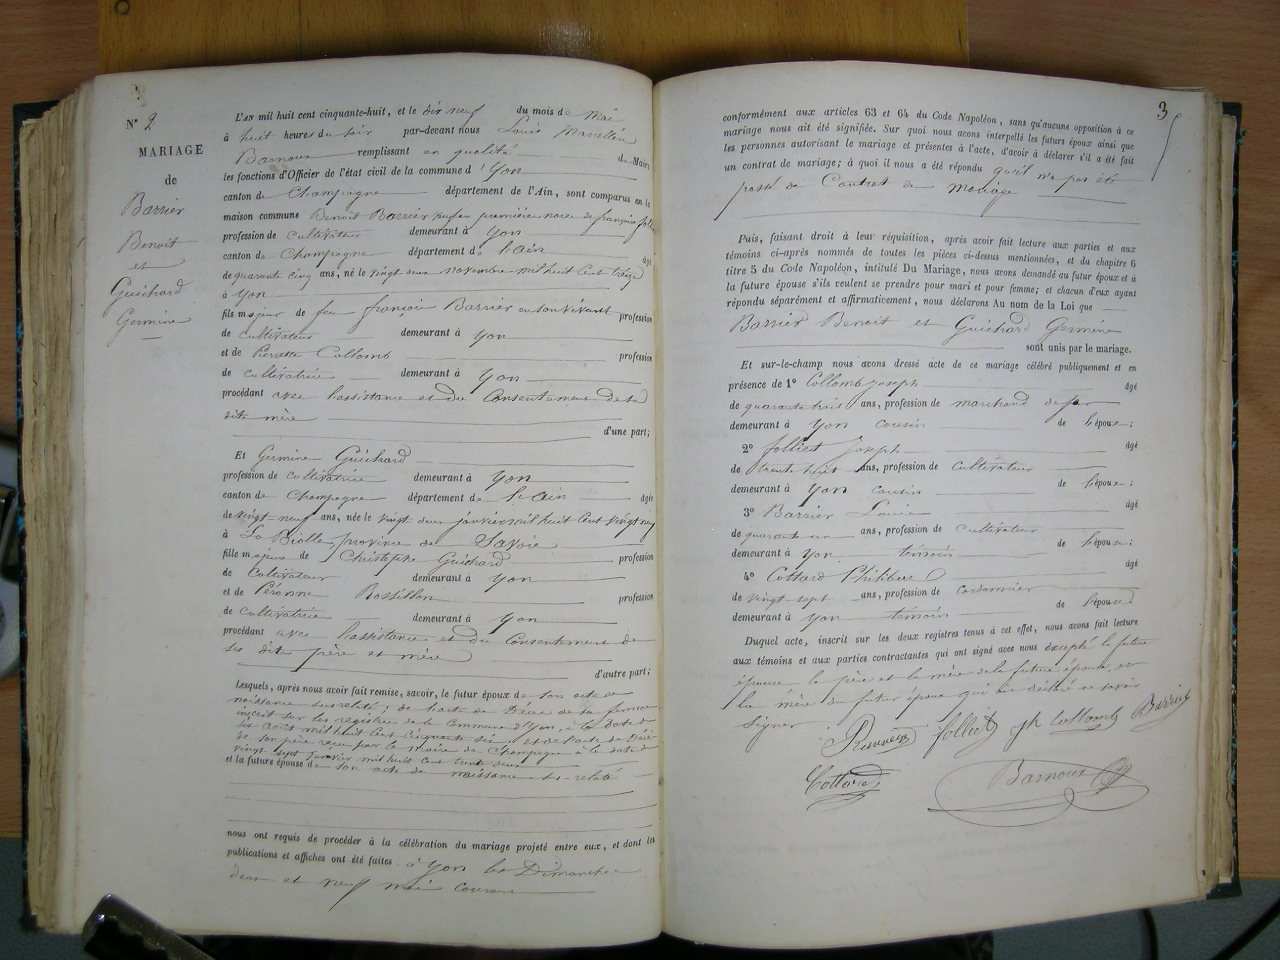 N° 2
MARIAGE
de
Barrier
Benoit
et
Guichard
Germine
L'AN mil huit cent cinquante-huit, et le dix neuf du mois de Mai
à huit heures du soir par-devant nous Louis Marcellin
Barnoux remplissant en qualité de Maire
les fonctions d'Officier de l'état civil de la commune d'Yon
canton de Champagne département de l'Ain, sont comparus en la
maison commune Benoit Barrier veuf en première noce de françoise
profession de cultivateur demeurant à Yon
canton de Champagne département de l'ain âgé
de quarante cinq ans, né le vingt novembre mil huit Cent treize
à Yon
fils majeur de feu françois Barrier en son vivant profession
de cultivateur demeurant à Yon
et de Pierrette Collomb profession
de cultivatrice demeurant à Yon
procédant avec l'assistance et du Consentement de sa
dite mère
d'une part;
Et Germine Guichard
profession de cultivatrice demeurant à Yon
canton de Champagne département de l'Ain âgée
de vingt-neuf ans, née le vingt deux janvier mil huit Cent vingt neuf
à La Biolle, province de Savoie
fille majeure de Christophe Guichard profession
de Cultivateur demeurant à Yon
et de Péronne Rossillon profession
de cultivatrice demeurant à Yon
procédant avec l'assistance et du Consentement de
ses dits père et mère
d'autre part;
Lesquels, après nous avoir fait remise, savoir, le futur époux de son acte de
naissance sus relaté; de l'acte de Décès de sa femme
inscrit sur les registres de la Commune d'Yon, à la date du
août mil huit Cent Cinquante six et de l'acte de Décès
de son père reçu par le maire de Champagne à la date du
vingt sept janvier mil huit Cent trente deux
et la future épouse de son acte de naissance sus relaté
nous ont requis de procéder à la célébration du mariage projeté entre eux, et dont les
publications et affiches ont été faites à Yon les Dimanches
deux et neuf mai courant
3
conformément aux articles 63 et 64 du Code Napoléon, sans qu'aucune opposition à ce
mariage nous ait été signifiée. Sur quoi nous avons interpellé les futurs époux ainsi que
les personnes autorisant le mariage et présentes à l'acte, d'avoir à déclarer s'il a été fait
un contrat de mariage; à quoi il nous a été répondu qu'il n'a pas été
passé de Contrat de mariage
Puis, faisant droit à leur réquisition, après avoir fait lecture aux parties et aux
témoins ci-après nommés de toutes les pièces ci-dessus mentionnées, et du chapitre 6
titre 5 du Code Napoléon, intitulé Du Mariage, nous avons demandé au futur époux et à
la future épouse s'ils veulent se prendre pour mari et pour femme; et chacun d'eux ayant
répondu séparément et affirmativement, nous déclarons Au nom de la Loi que
Barrier Benoit et Guichard Germine
sont unis par le mariage.
Et sur-le-champ nous avons dressé acte de ce mariage célébré publiquement et en
présence de 1° Collomb joseph âgé
de quarante huit ans, profession de marchand de fer
demeurant à Yon cousin de l'époux;
2° Jolliet Joseph âgé
de trente huit ans, profession de Cultivateur
demeurant à Yon cousin de l'époux;
3° Barrier Louis âgé
de quarante un ans, profession de cultivateur
demeurant à Yon témoin de l'époux;
4° Cottard Philibert âgé
de vingt-sept ans, profession de cordonnier
demeurant à Yon témoin de l'épouse
Duquel acte, inscrit sur les deux registres tenus à cet effet, nous avons fait lecture
aux témoins et aux parties contractantes qui ont signé avec nous excepté la future
épouse le père et la mère de la future épouse, et
la mère du futur époux qui ont déclaré ne savoir
signer
Jolliet Jh Collomb Barrier
Cottard Barnoux